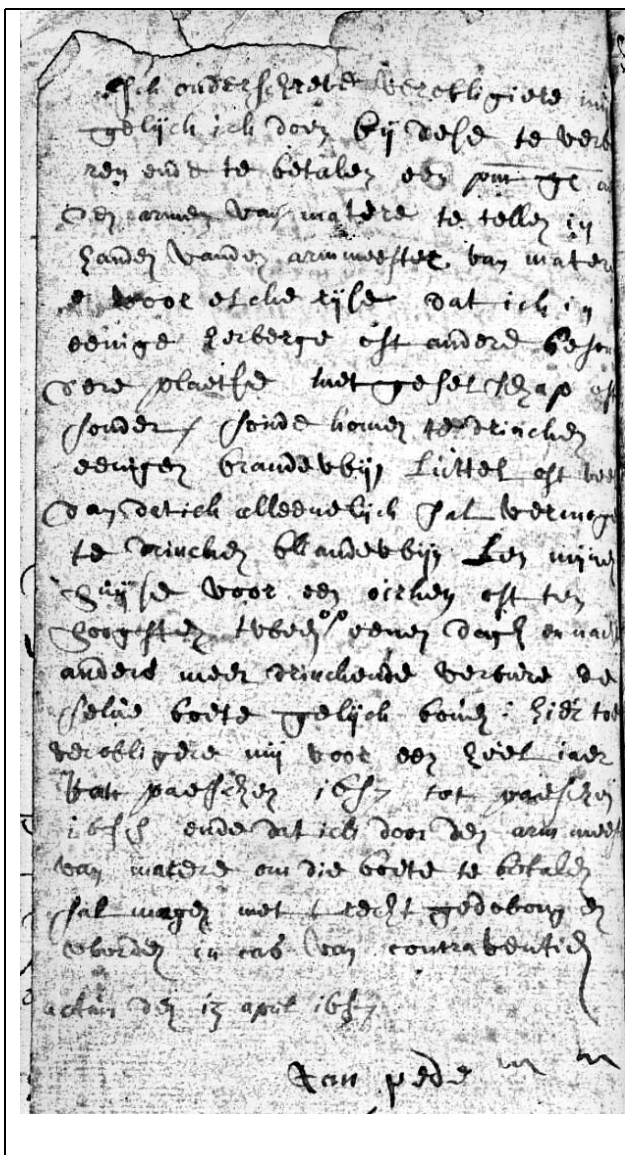 Ick onderschreve verobligiere mij
gelijck ick doen bij dese te verb
ren ende te betalen een pont gr
den armen van matere te tellen in
handen vanden armmeester van mater
voor elcke rijse dat ick in
eenige herberge oft andere beson
dere plaetse met geselschap oft
sonder / soude komen te drincken
eenigen brandewijn luttel oft vee
dan dat ick alleenelijck sal vermoge
te drincken brandewijn ten mijnen
huijse voor een oirken oft ten
hoogsten tween eenen dagh
anders meer drinckende verbure de
selve boete gelijck boven : hier toe
verobligere mij voor een heel jaer
van paesschen 1657 tot paesschen
1658 ende dat ick door den armmeest
van matere om die boete te betalen
sal mogen met recht gedwongen
worden in cas van contraventien
actum den 13 april 1657
Van pede